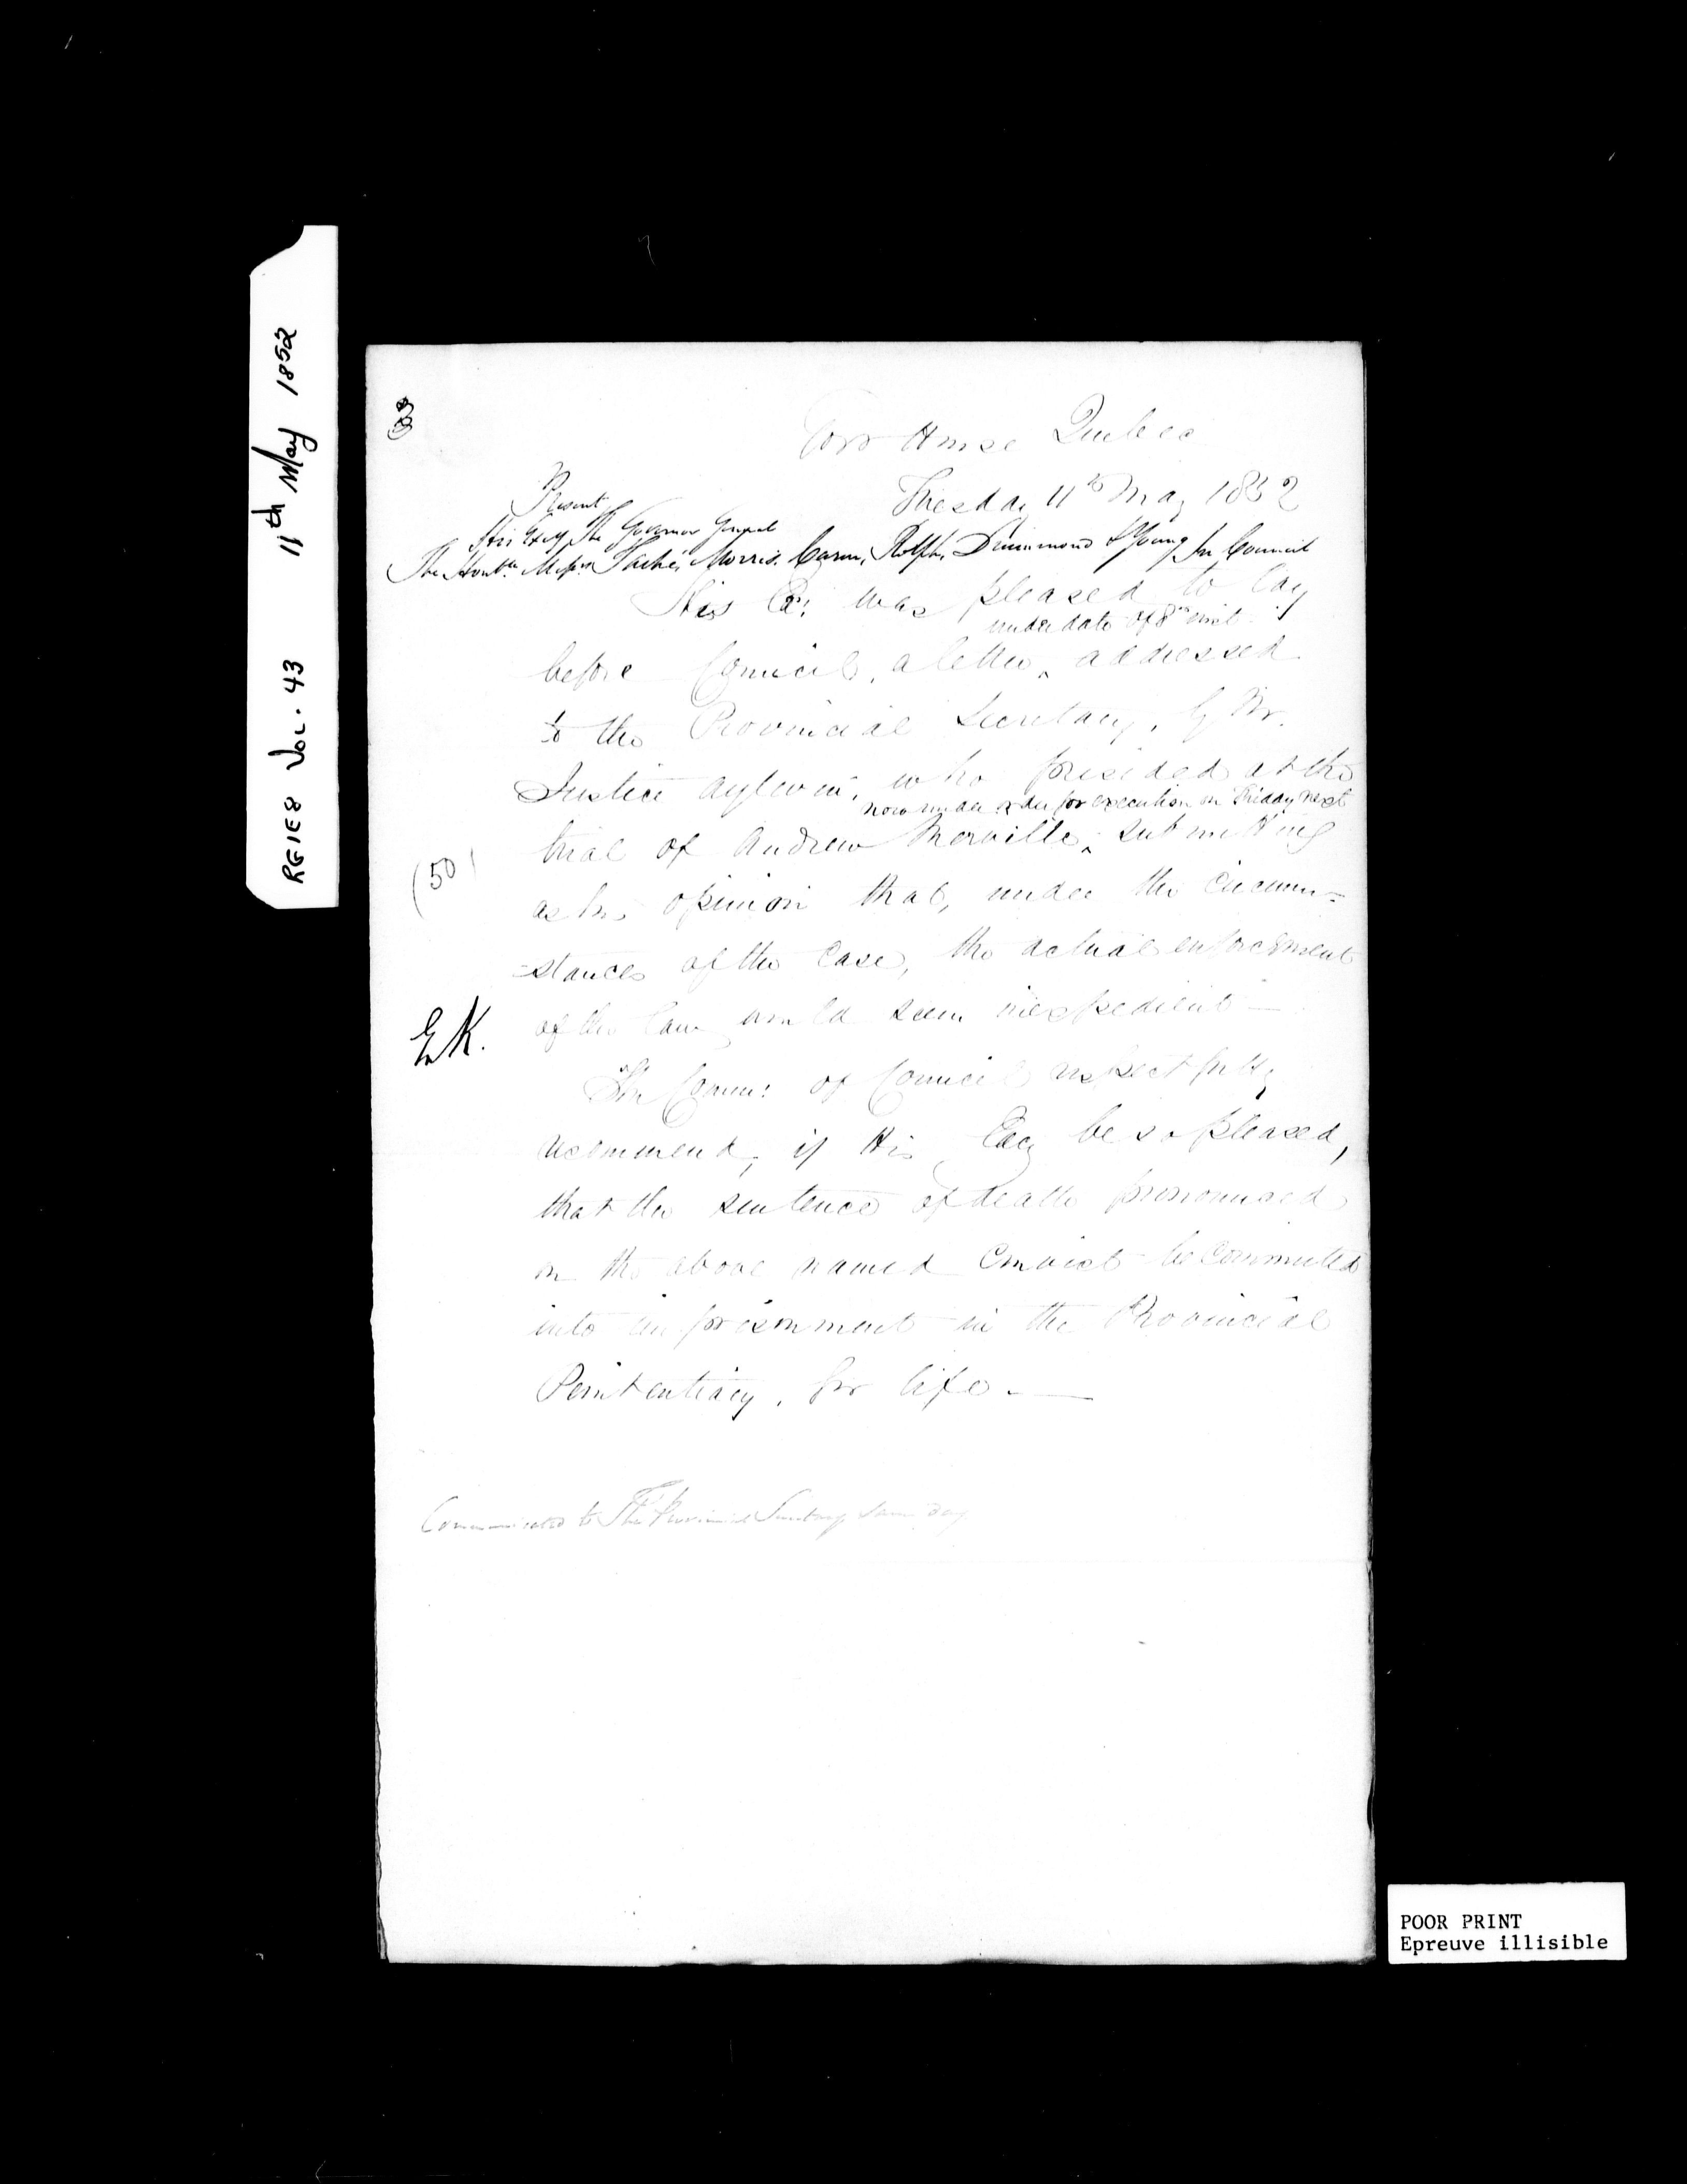 RG1E8 VOL. 43 11th May 1852
3
Govt House Quebec
Tuesday 11th May 1852
Present
His Excy The Governor General
The Honble Messrs Taché, Morris, Caron, Rolph, Drummond & Young In Council
His Ex: was pleased to lay
under date of 8th inst.
before Council, a letter, addressed
to the Provincial Secretary, by Mr.
Justice Aylwin, who presided at the
now under order for execution on Friday next
trial of Andrew Merville, submitting
(50)
as his opinion that, under the circum=
=stances of the case, the actual enforcement
of the law would seem inexpedient —
E.K.
The Comm: of Council respectfully
recommend, if His Excy be so pleased,
that the sentence of death pronounced
on the above named Convict be commuted
into imprisonment in the Provincial
Penitentiary, for life. —
Communicated to The Provincial Secretary same day
POOR PRINT
Epreuve illisible